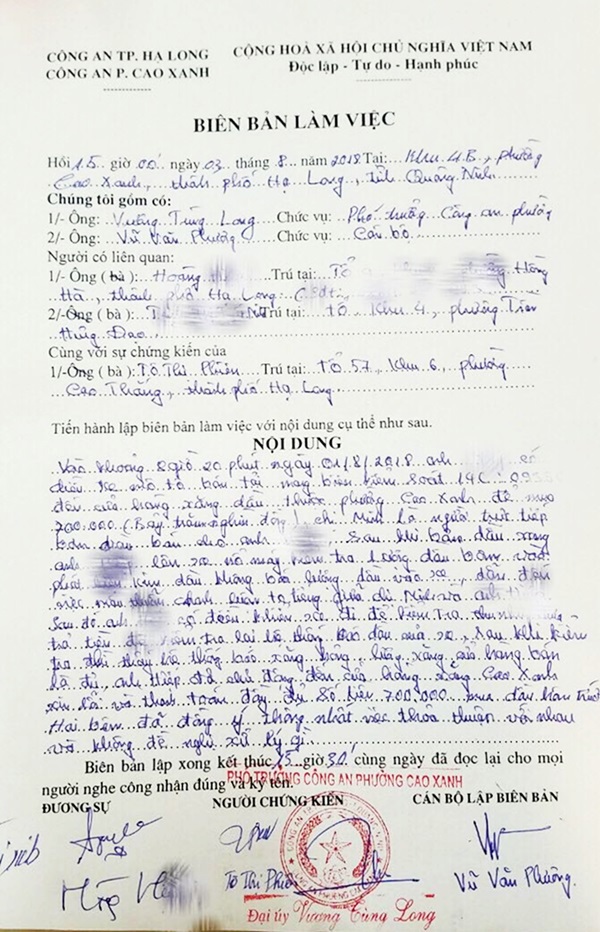 CÔNG AN TP. HẠ LONG
CÔNG AN P. CAO XANH
CỘNG HOÀ XÃ HỘI CHỦ NGHĨA VIỆT NAM
Độc lập - Tự do - Hạnh phúc
BIÊN BẢN LÀM VIỆC
Hồi 15 giờ 00 ngày 03 tháng 8 năm 2018 Tại: Khu 4B, phường
Cao Xanh, thành phố Hạ Long, tỉnh Quảng Ninh
Chúng tôi gồm có:
1/- Ông: Vương Tùng Long Chức vụ: Phó trưởng Công an phường
2/- Ông: Vũ Văn Phường Chức vụ: Cán bộ
Người có liên quan:
1/- Ông ( bà ): Hoàng Trú tại: Tổ Hồng
Hà, thành phố Hạ Long
2/-Ông ( bà ): Trú tại: tổ Khu 4, phường Trần
Hưng Đạo
Cùng với sự chứng kiến của
1/-Ông ( bà ): Tô Thị Phiên Trú tại: Tổ 57, Khu 6, phường
Cao Thắng, thành phố Hạ Long
Tiến hành lập biên bản làm việc với nội dung cụ thể như sau.
NỘI DUNG
Vào khoảng giờ 20 phút ngày 01/8/2018 anh có
điều xe mô tô bán tải mang biển kiểm soát 14C
đến cửa hàng xăng dầu thuộc phường Cao Xanh để mua
700.000 (Bảy trăm nghìn đồng) chị Minh là người trực tiếp
bơm dầu bán cho anh Sau khi bơm dầu xong
anh lên xe nổ máy kiểm tra lượng dầu bơm vào
phát kim dầu không báo lượng dầu vào xe, dẫn đến
việc mâu thuẫn tranh luận to tiếng giữa chị Minh và anh
Sau đó anh có điều khiển xe đi để kiểm tra
trả tiền để kiểm tra lại hệ thống báo dầu của xe, sau khi kiểm
tra thì thấy hệ thống báo xăng hỏng, lượng xăng cửa hàng bán
là đủ, anh Hiệp đã chủ động đến cửa hàng xăng Cao Xanh
xin lỗi và thanh toán đầy đủ số tiền 700.000 mua dầu hôm trước
Hai bên đã đồng ý thống nhất việc thỏa thuận với nhau
và không đề nghị xử lý gì.
Biên bản lập xong kết thúc 15 giờ 30 cùng ngày đã đọc lại cho mọi
người nghe công nhận đúng và ký tên.
PHÓ TRƯỞNG CÔNG AN PHƯỜNG CAO XANH
ĐƯƠNG SỰ
NGƯỜI CHỨNG KIẾN
CÁN BỘ LẬP BIÊN BẢN
Tô Thị Phiên
Vũ Văn Phường
Đại úy Vương Tùng Long